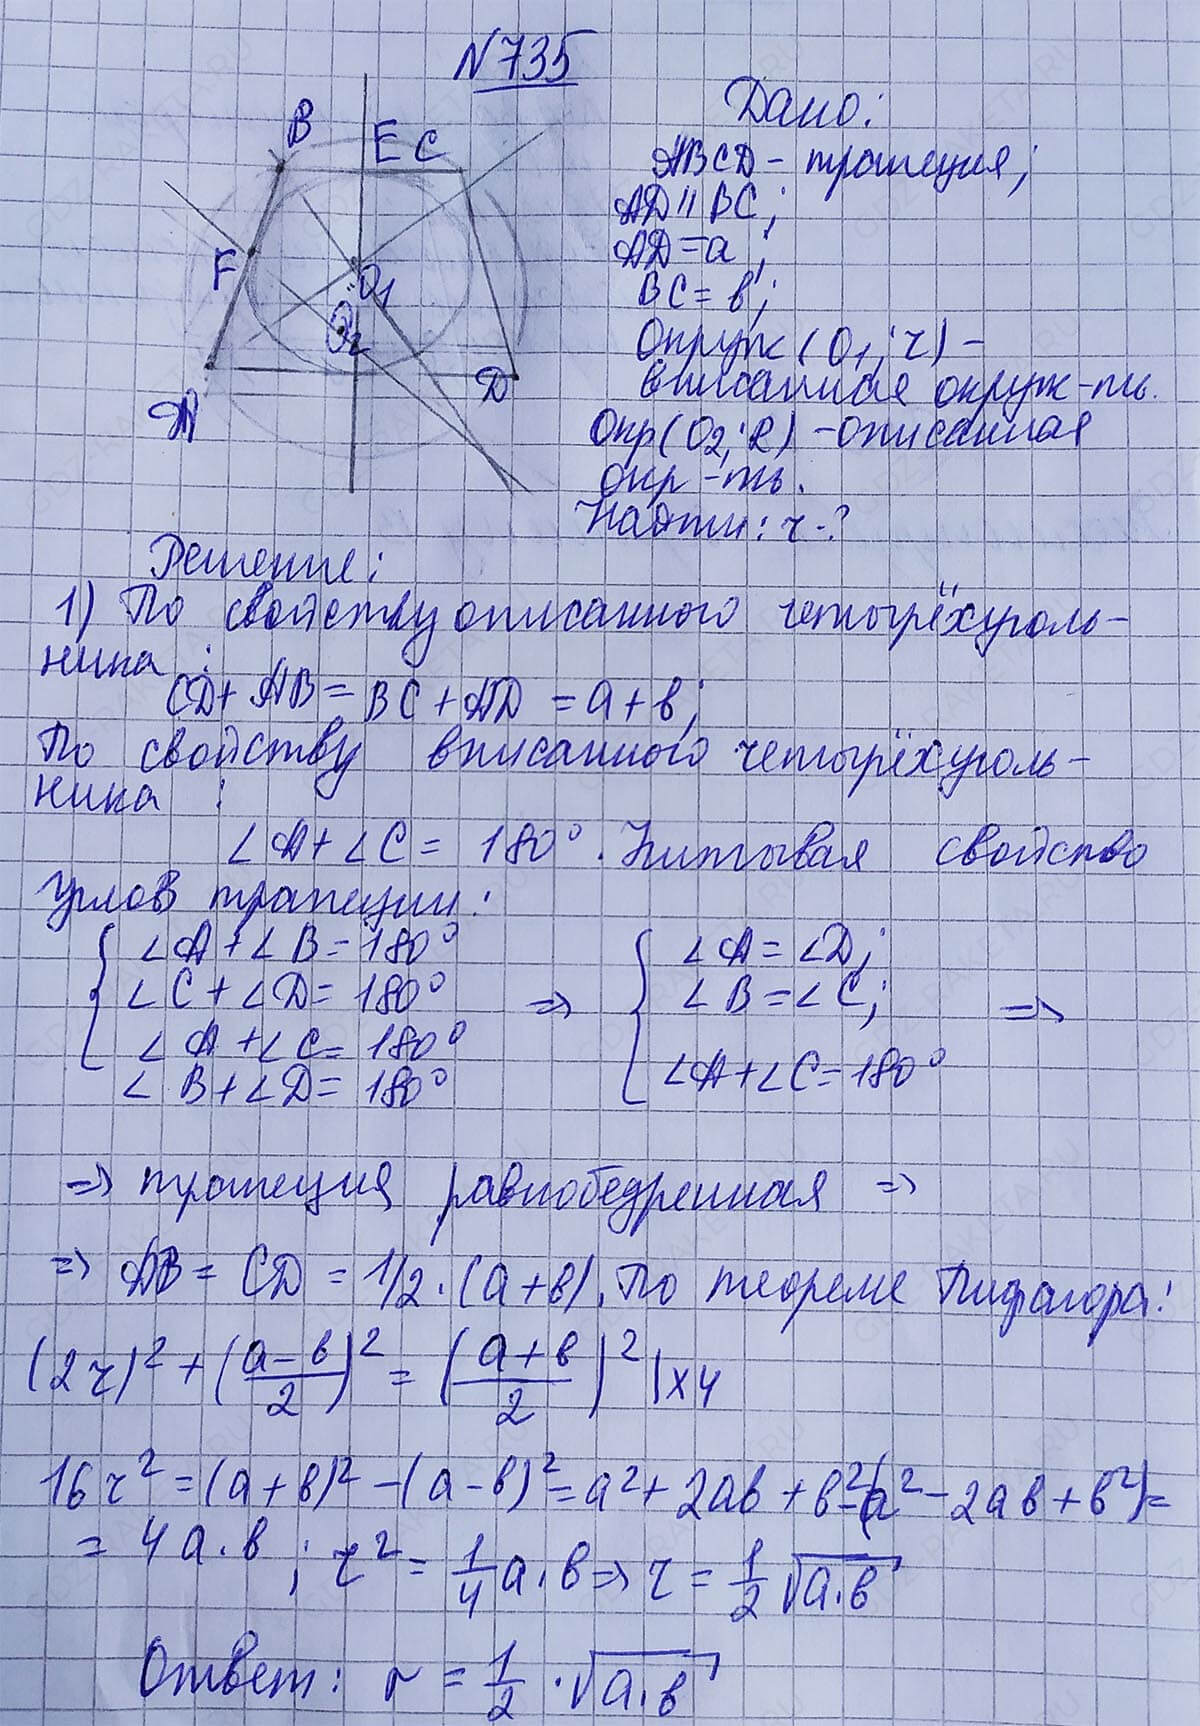 N735
B E C
F
O1
O2
A D
Дано:
ABCD – трапеция;
AD || BC;
AD = a;
BC = b;
Окруж (O1; r) –
вписанная окруж-ть.
Окр (O2; R) – описанная
окр-ть.
Найти: r - ?
Решение:
1) По свойству описанного четырёхуголь-
ника:
CD + AB = BC + AD = a + b;
По свойству вписанного четырёхуголь-
ника:
∠A + ∠C = 180°. Учитывая свойство
углов трапеции:
{ ∠A + ∠B = 180° { ∠A = ∠D;
∠C + ∠D = 180° => ∠B = ∠C; =>
∠A + ∠C = 180° ∠A + ∠C = 180°
∠B + ∠D = 180°
=> трапеция равнобедренная =>
=> AB = CD = 1/2 · (a + b). По теореме Пифагора:
(2r)² + ((a – b)/2)² = ((a + b)/2)² | × 4
16r² = (a + b)² – (a – b)² = a² + 2ab + b² – (a² – 2ab + b²) =
= 4a·b; r² = 1/4 a·b => r = 1/2 √a·b
Ответ: r = 1/2 · √a·b